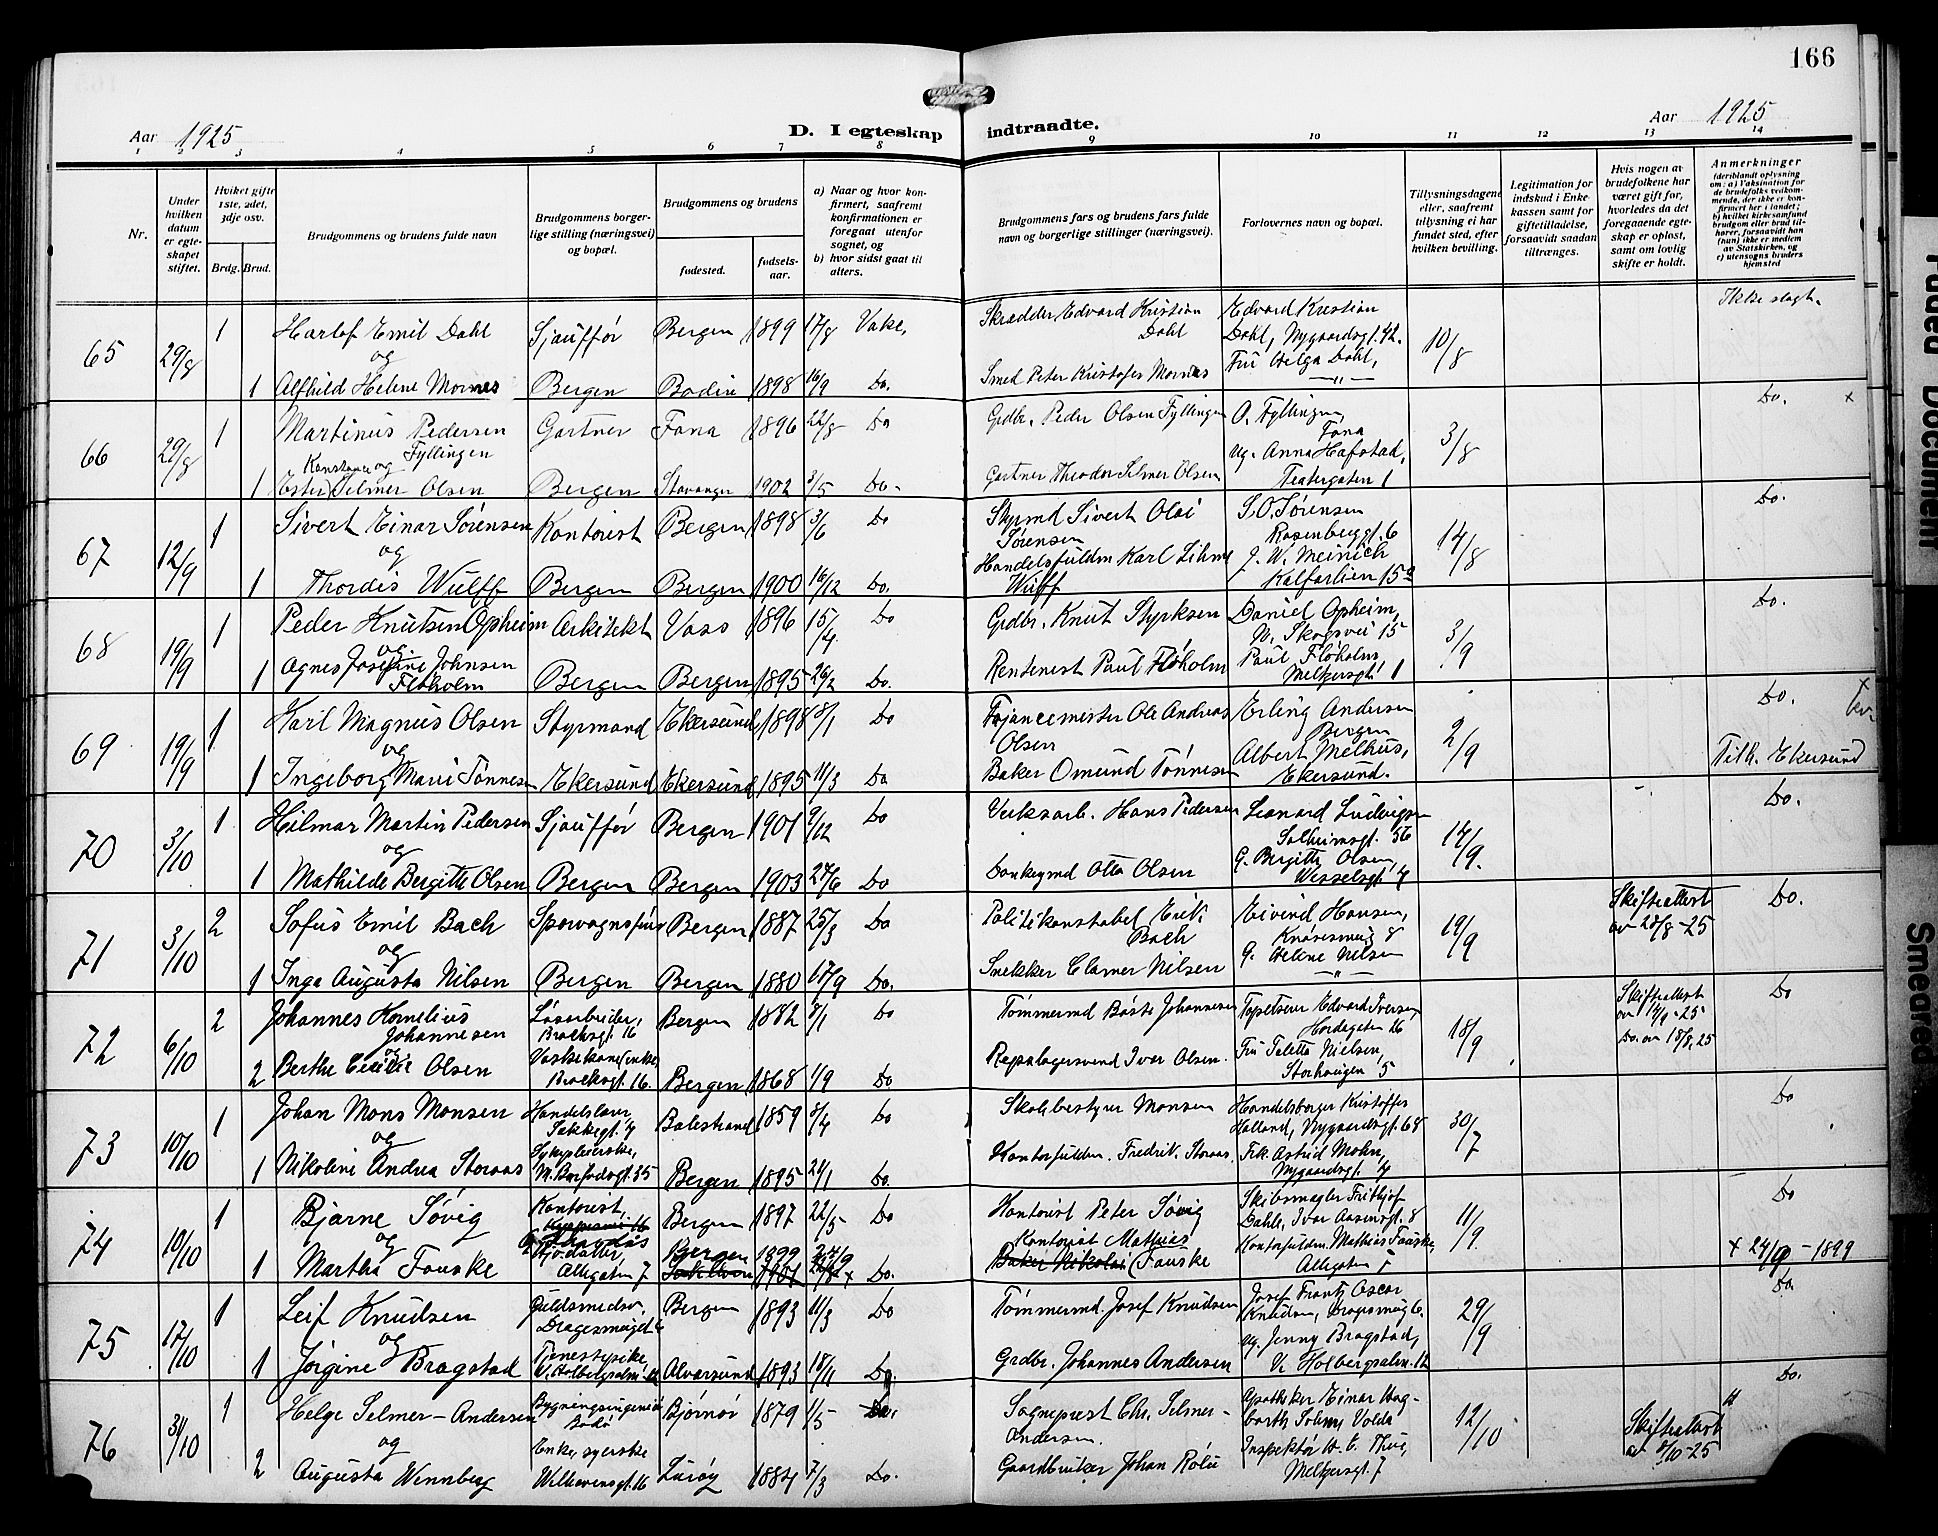 166
Aar 1925
D. I egteskap indtraadte.
Aar 1925
1 2 3 4 5 6 7 8 9 10 11 12 13 14
Nr.
Under hvilken datum er egteskapet stiftet.
Hvilket gifte 1ste, 2det, 3dje osv.
Brdg. Brud.
Brudgommens og brudens fulde navn
Brudgommens borgerlige stilling (næringsvei) og bopæl.
Brudgommens og brudens
fødested.
fødselsaar.
a) Naar og hvor konfirmert, saafremt konfirmationen er foregaaet utenfor sognet, og
b) hvor sidst gaat til alters.
Brudgommens fars og brudens fars fulde navn og borgerlige stillinger (næringsvei).
Forlovernes navn og bopæl.
Tillysningsdagene eller, saafremt tillysning ei har fundet sted, efter hvilken bevilling.
Legitimation for indskud i Enkekassen samt for giftetilladelse, forsaavidt saadan tiltrænges.
Hvis nogen av brudefolkene har været gift før, hvorledes da det foregaaende egteskap er opløst, samt om lovlig skifte er holdt.
Anmerkninger
(deriblandt oplysning om: a) Vaksination for de brudefolks vedkommende, der ikke er konfirmert her i landet; b) hvilket kirkesamfund brudgom eller brud tilhører, forsaavidt han (hun) ikke er medlem av Statskirken, og c) utensogns bruders hjemsted
65 29/8 1 Harlof Emil Dahl Sjauffør Bergen 1899 17/8 Vake, Skrædder Edvard Kristian Dahl Edvard Kristian Dahl, Nygaardsgt. 42. 10/8 Ikke slegt.
og
1 Alfhild Helene Mornes Bergen Bodin 1898 16/9 Do. Smed Peter Kristofer Mornes Fru Helga Dahl, —"—
66 29/8 1 Martinus Pedersen Fyllingen Gartner Fana 1896 22/8 Do Grdbr. Peder Olsen Fyllingen O. Fyllingen, Fana 3/8 Do. x
og
1 Ester Konstance Selmer Olsen Bergen Stavanger 1902 3/5 Do. Gartner Theodor Selmer Olsen Ug. Anna Hafstad, Teatergaten 1
67 12/9 1 Sivert Einar Sørensen Kontorist Bergen 1898 3/6 Do Styrmd Sivert Olai Sørensen S. O. Sørensen Rosenberggt. 6 14/8 Do.
og
1 Thordis Wulff Bergen Bergen 1900 16/12 Do. Handelsfuldm Karl Lihme Wulff J. W. Meinich Kalfarlien 15a
68 19/9 1 Peder Knutsen Opheim Arkitekt Voss 1896 15/4. Do Grdbr. Knut Styrksen Daniel Opheim, N. Skogsvei 15 3/9 Do.
og
1 Agnes Josefine Johnsen Floholm Bergen Bergen 1895 26/2 Do. Rentenest Paul Floholm Paul Floholm Meltzersgt 1
69 19/9 1 Karl Magnus Olsen Styrmand Ekersund 1898 8/1 Do Fajancemester Ole Andreas Olsen Erling Andersen Bergen 2/9 Do. x
og
1 Ingeborg Marie Tønnesen Ekersund Ekersund 1895 11/3 Do Baker Omund Tønnesen Albert Melhus, Ekersund. Tilh. Ekersund
70 3/10 1 Hilmar Martin Pedersen Sjauffør Bergen 1901 9/12 Do Verksarb. Hans Pedersen Leonard Ludvigsen Solheimsgt. 56 14/9. Do.
og
1 Mathilde Bergitte Olsen Bergen Bergen 1903 27/6 Do Donkeymd Otto Olsen G. Bergitte Olsen, Wesselsgt 4
71 3/10 2 Sofus Emil Bach Sporvognsfører Bergen 1887 25/3 Do Politikonstabel Erik Bach Eivind Hansen, Knøsesmug 8 19/9 Skifteattest av 28/8-25 Do.
og
1 Inga Augusta Nilsen Bergen Bergen 1880 17/9 Do. Snekker Clamer Nilsen G. Helene Nilsen —"—
72 6/10 2 Johannes Kornelius Johannesen Løsarbeider, Brokesgt. 16 Bergen 1882 8/1 Do Tømmermd Børte Johannesen Tapetserer Edvard Iversen Hordagaten 26 18/9 Skifteattest av 14/9-25 Do
og
2 Berthe Cecilie Olsen Vaskekone, enke, Brokesgt. 16. Bergen 1868 1/9 Do Repslagersvend Ivar Olsen. Fru Teletta Nielsen, Storhaugen 5 Do. av 18/8, 25
73 10/10 1 Johan Mons Monsen Handelslærer, Sækkegt. 4 Balestrand 1859 8/4 Do Skolebestyrer Monsen Handelsborger Kristoffer Holland, Nygaardsgt. 68 30/7 Do
og
1 Nikoline Andrea Storaas Sykepleierske, M. Barfodsgt. 35 Bergen 1895 24/1 Do. Kontorfuldm. Fredrik Storaas Frk. Astrid Mohn, Nygaardsgt. 4
74 10/10 1 Bjarne Søvig Kontorist, Bergen 1897 22/5 Do Kontorist Peter Søvig Skibsmægler Frithjof Dahle, Ivar Aasensgt. 8 11/9. Do
og
1 Martha Fauske Allegaten 7 Bergen 1899 1901 Do. Kontorist Mathias Baker Nikolai Fauske Kontorfuldm. Mathias Fauske, Allegaten 5 x 24/9-1899
75 17/10 1 Leif Knudsen Guldsmedsv. Dragesmuget 6 Bergen 1893 11/3 Do Tømmermd. Josef Knudsen Josef Frantz Oscar Knudsen, Dragesmug 6. 29/9 Do.
og
1 Jørgine Bragstad Tjenestepike, V. Holbergsalm. 12 Alversund 1893 18/11 Do. Grdbr. Johannes Andersen Ug. Jenny Bragstad, V. Holbergsalm. 12
76 31/10 1 Helge Selmer-Andersen Bygningsingeniør Bodø Bjørnør 1879 1/5 Do. Sogneprest Chr. Selmer-Andersen. Apotheker Einar Hagbarth Sohm, Volda 12/10 Skifteattest av 8/10-25 Do.
og
2 Augusta Wennberg Enke, syerske Welhavensgt. 16 Lurøy 1884 7/3 Do. Gaardbruker Johan Rølu Inspektør H. E. Thue, Meltzersgt. 7
Faded Document
Smeared